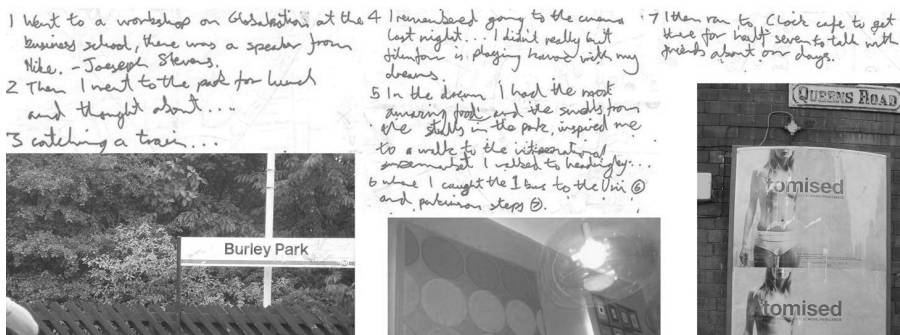 1 I went to a workshop on Globalisation at the
business school, there was a speaker from
Nike. - Joeseph Stevens.
2 Then I went to the park for lunch
and thought about....
3 catching a train...
Burley Park
4 I remembered going to the cinema
last night... I didn't really but
filmfan is playing havoc with my
dreams.
5 In the dream I had the most
amazing food and the smells from
the stalls in the park, inspired me
to a walk to the international
supermarket I walked to headingly...
6 where I caught the 1 bus to the Uni ⑥
and parkinson steps ⑦.
7 I then ran to Clock cafe to get
there for half seven to talk with
friends about our days.
QUEENS ROAD
tomised
tomised